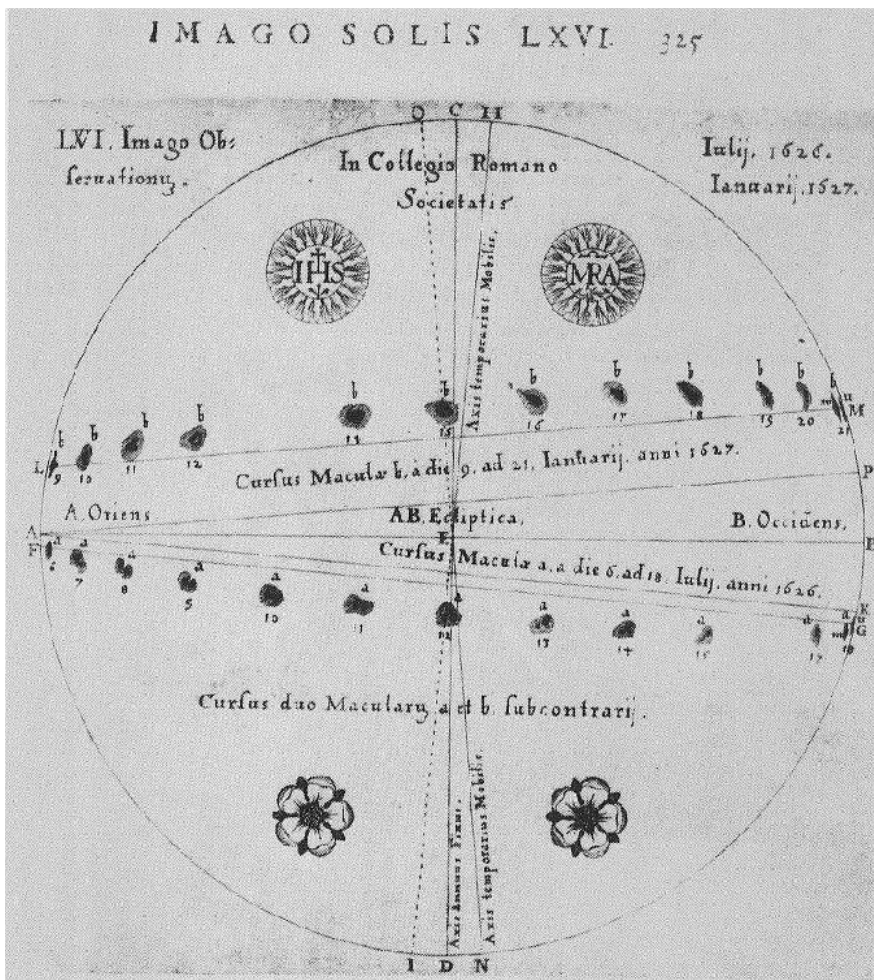 IMAGO SOLIS LXVI. 325
O C H
LVI. Imago Ob:
seruationũ.
In Collegio Romano
Societatis
Iulij. 1626.
Ianuarij. 1627.
IHS
MRA
Axis temporarius Mobilis.
b b b b b b b b b b b b
L 9 10 11 12 15 16 17 18 19 20 21 m u M
Cursus Maculæ b, a die 9. ad 21, Ianuarij. anni 1627.
P
A. Oriens AB. Ecliptica, B. Occidens,
A E B
F Cursus Maculæ a, a die 6. ad 18. Iulij, anni 1626.
K
a a a a a a a a a a a a
6 7 8 9 10 1 12 13 14 15 17 18 m u G
Cursus duo Macularũ a et b. subcontrarij.
Axis Annuus Fixus.
Axis temporarius Mobilis.
I D N